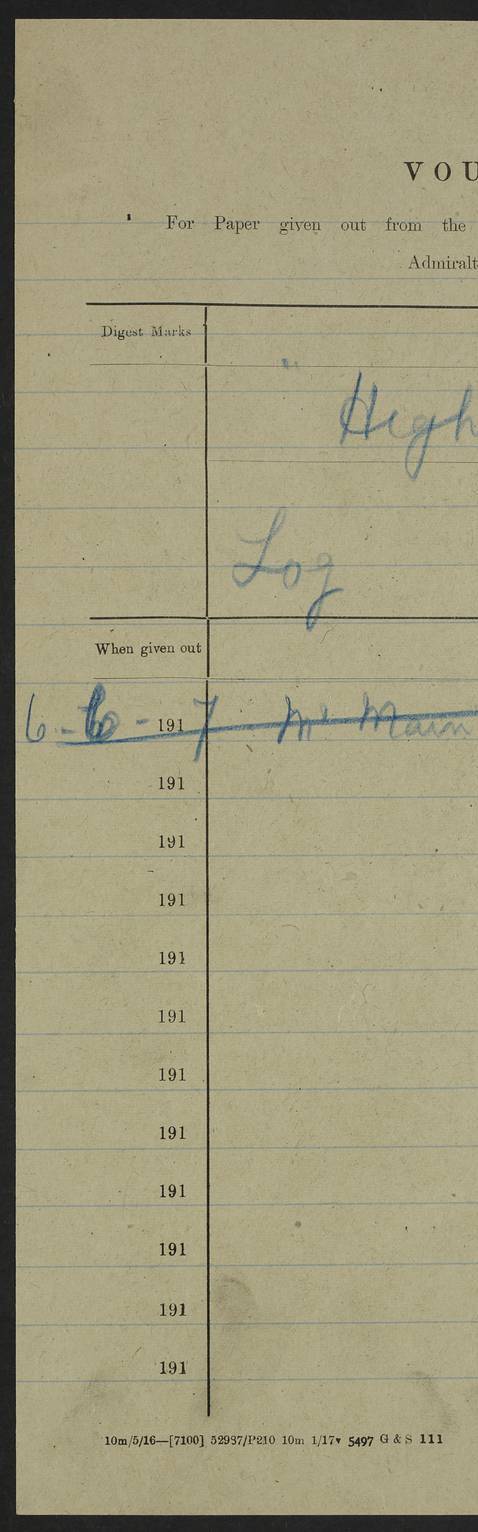 VOU
For Paper given out from the
Admiralt
Digest Marks
High
Log
When given out
6-6-1917 Mr Main
191
191
191
191
191
191
191
191
191
191
191
10m/5/16—[7100] 52937/P210 10m 1/17▾ 5497 G & S 111